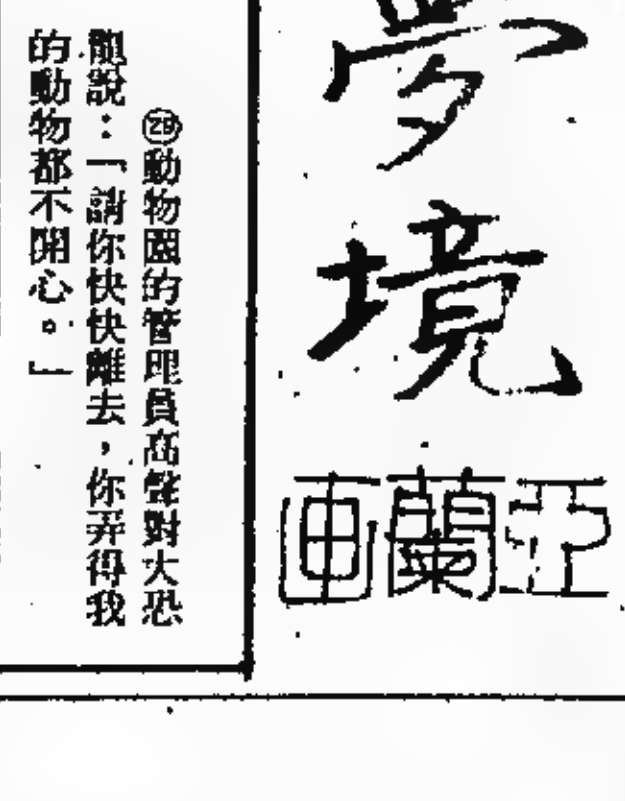 夢境
亞蘭画
㉘動物園的管理員高聲對大恐
龍說：「請你快快離去，你弄得我
的動物都不開心。」